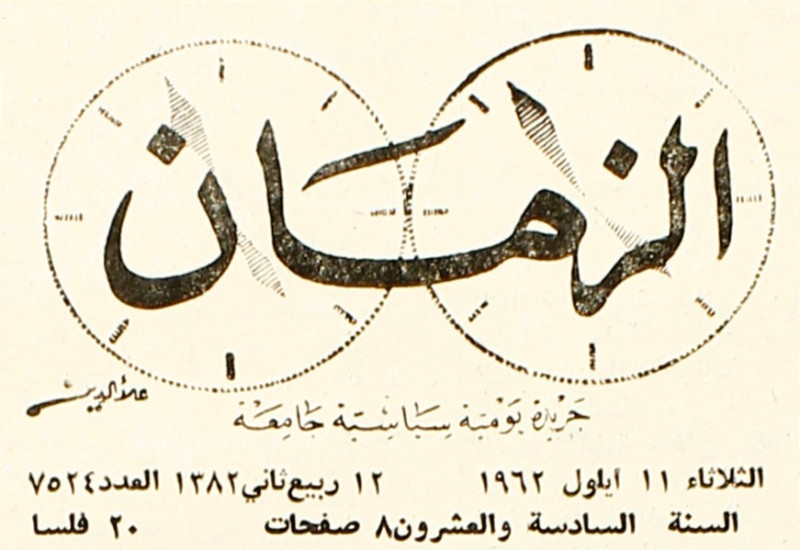 الزمان
علاء الدين
جريدة يومية سياسية جامعة
الثلاثاء ١١ ايلول ١٩٦٢ ١٢ ربيع ثاني ١٣٨٢ العدد ٧٥٢٤
السنة السادسة والعشرون ٨ صفحات ٢٠ فلسا